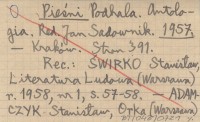 Pieśni Podhala. Antolo-
gia. Red. Jan Sadownik. 1957.
— Kraków. Stron 391.
Rec.: ŚWIRKO Stanisław,
Literatura Ludowa (Warszawa)
r. 1958, nr 1, s. 57-58. — ADAM-
CZYK Stanisław, Orka (Warszawa)